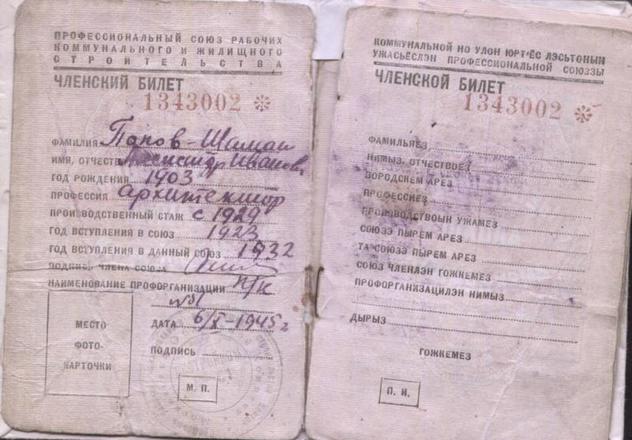 ПРОФЕССИОНАЛЬНЫЙ СОЮЗ РАБОЧИХ
КОММУНАЛЬНОГО И ЖИЛИЩНОГО
СТРОИТЕЛЬСТВА
ЧЛЕНСКИЙ БИЛЕТ
1343002 *
ФАМИЛИЯ Попов-Шаман
ИМЯ, ОТЧЕСТВО Александр Иванович
ГОД РОЖДЕНИЯ 1903
ПРОФЕССИЯ архитектор
ПРОИЗВОДСТВЕННЫЙ СТАЖ с 1929
ГОД ВСТУПЛЕНИЯ В СОЮЗ 1923
ГОД ВСТУПЛЕНИЯ В ДАННЫЙ СОЮЗ 1932
ПОДПИСЬ ЧЛЕНА СОЮЗА
НАИМЕНОВАНИЕ ПРОФОРГАНИЗАЦИИ
МЕСТО
ФОТО-
КАРТОЧКИ
ДАТА 6/X-1945г
ПОДПИСЬ
М. П.
КОММУНАЛЬНОЙ НО УЛОН ЮРТ'ЁС ЛЭСЬТОНЫИ
УЖАСЬЁСЛЭН ПРОФЕССИОНАЛЬНОЙ СОЮЗЗЫ
ЧЛЕНСКОЙ БИЛЕТ
1343002 *
ФАМИЛЬЕЗ
НИМЫЗ, ОТЧЕСТВОЕ
ВОРДСКЕМ АРЕЗ
ПРОФЕССИЕЗ
ПРОИЗВОДСТВОЫН УЖАМЕЗ
СОЮЗЭ ПЫРЕМ АРЕЗ
ТА СОЮЗЭ ПЫРЕМ АРЕЗ
СОЮЗ ЧЛЕНЛЭН ГОЖКЕМЕЗ
ПРОФОРГАНИЗАЦИЛЭН НИМЫЗ
ДЫРЫЗ
ГОЖКЕМЕЗ
П. И.